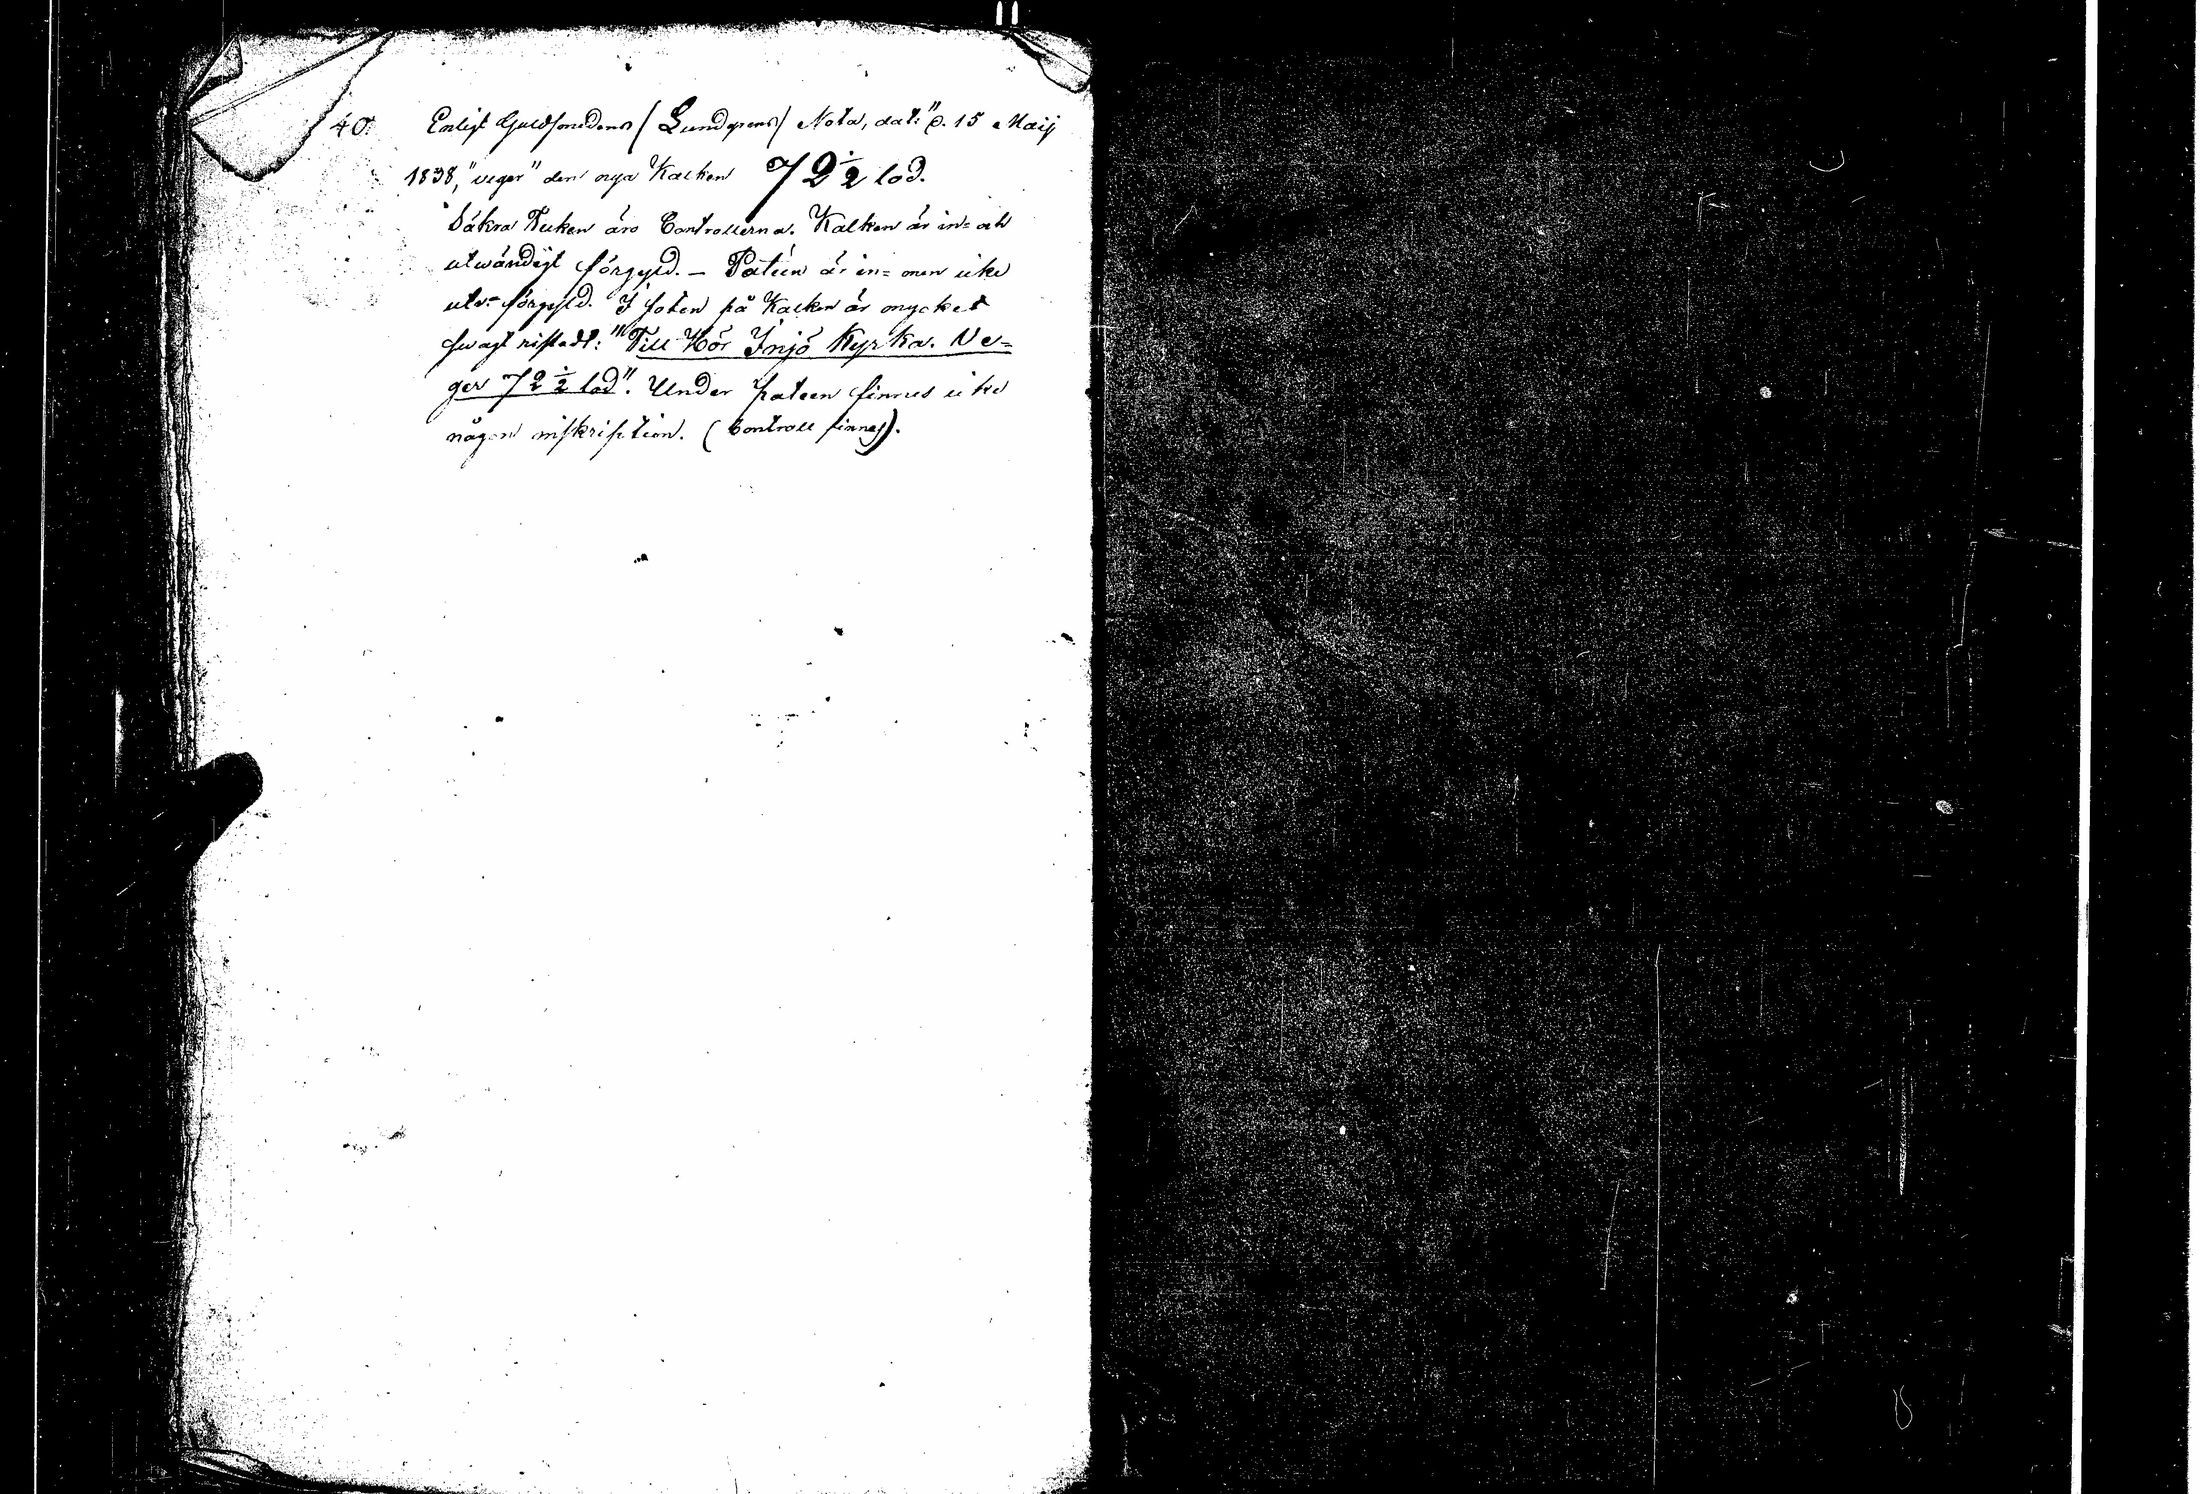 40. Enligt Guldsmedens (Lundgrens) Nota, dat: "d. 15 Maij
1838, "veger" den nya Kalken 72 1/2 lod.
Säkra Tecken äro Controllerna. Kalken är in= och
utwändigt förgyld. – Patéen är in= men icke
utv= förgyld. I foten på Kalken är mycket
swagt ristadt: "Till Hör Injö Kyrka. Ve=
ger 72 1/2 lod". Under pateen finnes icke
någon inskription. (Controll finnes).